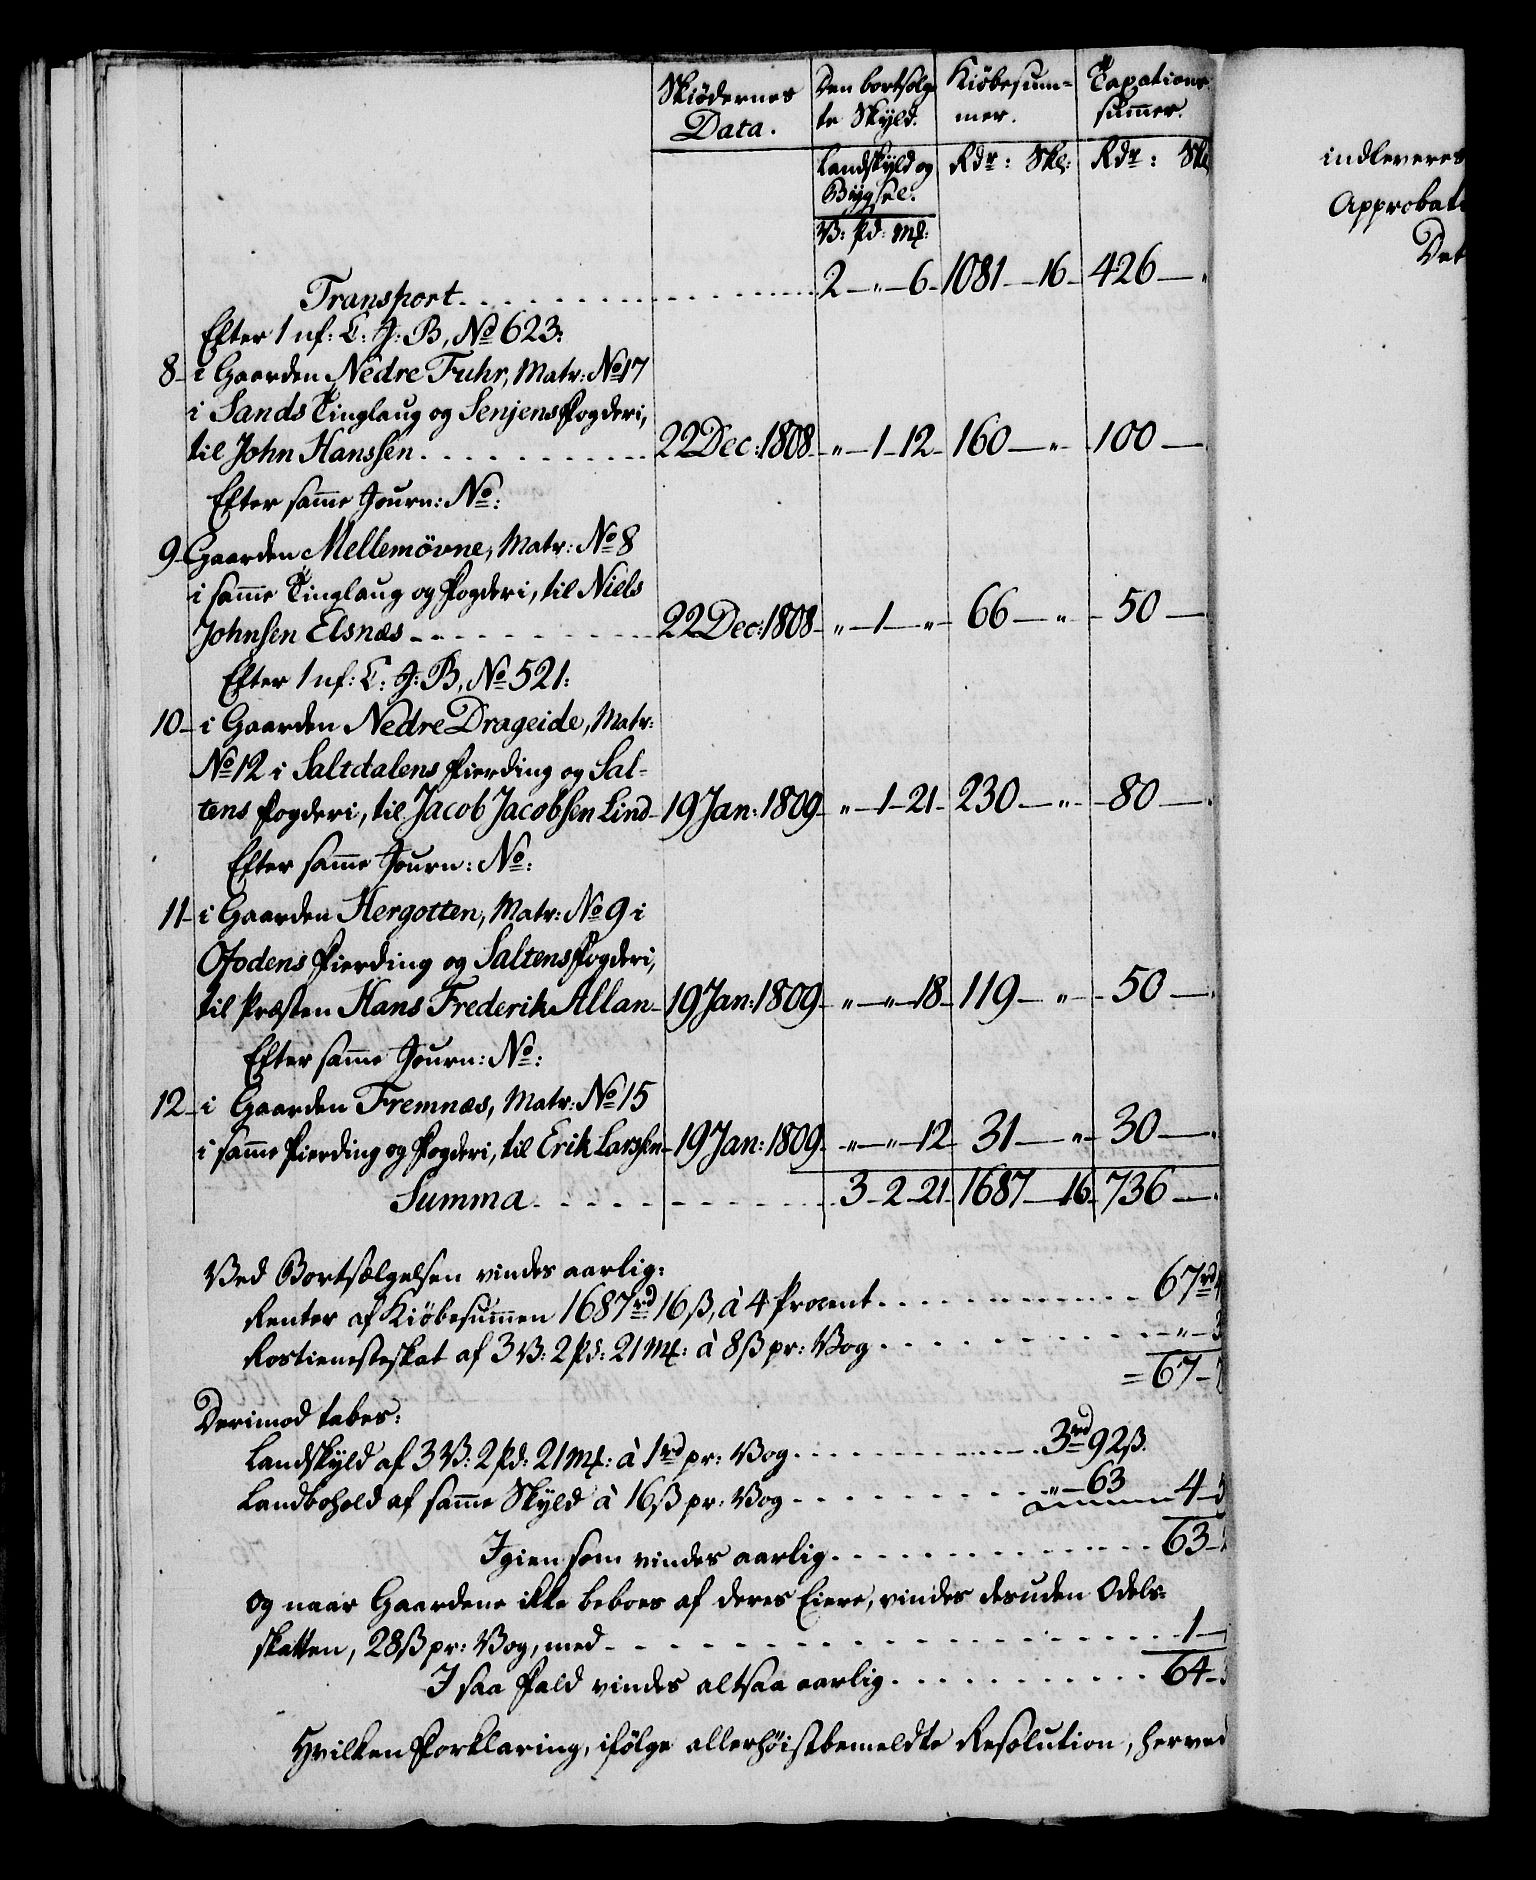 Skiödernes Data. Den bortsolgte Skyld. Kiöbesummer. Taxationssummer.
Landskyld og Bygsel. Rdr: Skl: Rdr: Skl
V: Pd: Mk:
Transport 2 — " — 6 1081 — 16 426 — "
Efter 1 nf: C: J: B, No 623:
8 i Gaarden Nedre Fuhr, Matr: No 17
i Sands Tinglaug og Senjens Fogderi,
til John Hanssen 22 Dec: 1808 " — 1 — 12 160 — " 100 —
Efter samme Journ: No:
9 Gaarden Mellemövne, Matr: No 8
i samme Tinglaug og Fogderi, til Niels
Johnsen Elsnæs 22 Dec: 1808 " — 1 — " 66 — " 50 —
Efter 1 nf: C: J: B, No 521:
10 i Gaarden Nedre Drageide, Matr:
No 12 i Saltdalens Fierding og Sal-
tens Fogderi, til Jacob Jacobsen Lind 19 Jan: 1809 " — 1 — 21 230 — " 80 —
Efter samme Journ: No:
11 i Gaarden Hergotten, Matr: No 9 i
Ofodens Fierding og Saltens Fogderi,
til Præsten Hans Frederik Allan 19 Jan: 1809 " — " — 18 119 — " 50 —
Efter samme Journ: No:
12 i Gaarden Fremnæs, Matr: No 15
i samme Fierding og Fogderi, til Erik Larssen 19 Jan: 1809 " — " — 12 31 — " 30 —
Summa 3 — 2 — 21 1687 — 16 736 —
Ved Bortsælgelsen vindes aarlig:
Renter af Kiöbesummen 1687 rd 16 ß, à 4 Procent 67 rd
Rostienesteskat af 3 V: 2 Pd: 21 Mk: à 8 ß pr: Vog "
= 67
Derimod tabes:
Landskyld af 3 V: 2 Pd: 21 Mk: à 1 rd pr: Vog 3 rd 92 ß.
Landbohold af samme Skyld à 16 ß pr: Vog " — 63 4
Igien som vindes aarlig 63
og naar Gaardene ikke beboes af deres Eiere, vindes desuden Odels-
skatten, 28 ß pr: Vog, med 1
I saa Fald vindes altsaa aarlig 64
Hvilken Forklaring, ifölge allerhöistbemeldte Resolution, herved
indleveres
Approbati
Det